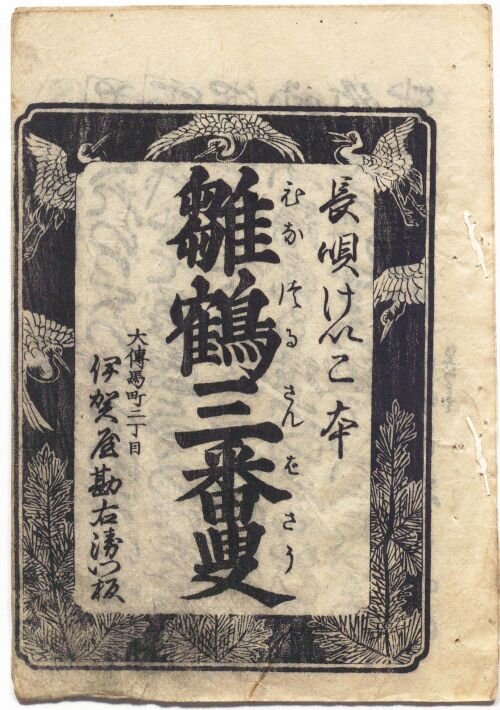 長唄けいこ本
ひなづるさんばさう
雛鶴三番叟
大傳馬町二丁目
伊賀屋勘右衛門板